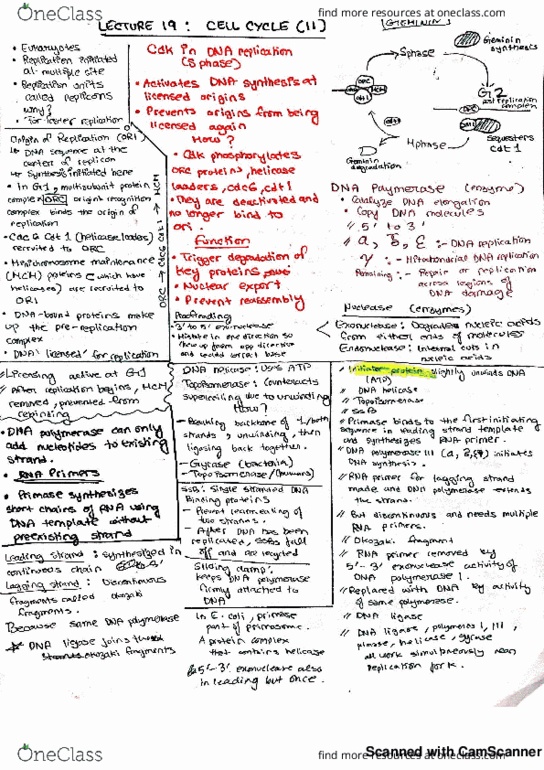 OneClass
find more resources at oneclass.com
LECTURE 19 : CELL CYCLE (II)
• Eukaryotes
• Replication initiated
at multiple site
• Replication units
called replicons
Why?
• For faster replication
Origin of Replication (ORI)
DNA sequence at the
center of replicon
Synthesis initiated here
• In G1, multisubunit protein
complex ORC origin recognition
complex binds the origin of
replication
• Cdc6 Cdt 1 (helicase loaders)
recruited to ORC
• Minichromosome maintenance
(MCM) proteins (which have
helicases) are recruited to
ORI
• DNA-bound proteins make
up the pre-replication
complex
• DNA 'licensed' for replication
ORC → Cdc6 Cdt 1 → MCM
Cdk in DNA replication
(S phase)
• Activates DNA synthesis at
licensed origins
• Prevents origins from being
licensed again
How?
• Cdk phosphorylates
ORC proteins, helicase
loaders, cdc6, cdt1
• They are deactivated and
no longer bind to
ori.
Function
• Trigger degradation of
key proteins
• Nuclear export
• Prevent reassembly
GEMININ
Geminin
synthesis
S phase
ORC
MCM
G1
G2
replication
complex
ORC
sequesters
cdt 1
M phase
Geminin
degradation
DNA Polymerase (enzyme)
• Catalyze DNA elongation
• Copy DNA molecules
" 5' to 3'
" α, δ, ε :- DNA replication
γ :- Mitochondrial DNA replication
Remaining :- Repair or replication
across legions of
DNA damage
Nuclease (enzymes)
Exonuclease: Degrades nucleic acids
from either ends of molecules
Endonuclease: Internal cuts in
nucleic acids
Proofreading
• 3' to 5' exonuclease
• Mistake in one direction so
from opp direction
and could correct base
Licensing active at G1
" After replication begins, MCM
removed, prevented from
rebinding
• DNA polymerase can only
add nucleotides to existing
strand.
• RNA Primers
• Primase synthesizes
short chains of RNA using
DNA template without
preexisting strand
Leading strand : synthesized in
continuous chain
Lagging strand : Discontinuous
fragments called okazaki
fragments.
Because same DNA polymerase
DNA ligase joins
okazaki fragments
DNA helicase : Uses ATP
Topoisomerase : Counteracts
supercoiling due to unwinding
How?
- Breaking backbone of 1/both
strands, unwinding, then
ligasing back together.
- Gyrase (bacteria)
- Topoisomerase I (humans)
SSB : Single stranded DNA
Binding proteins
- Prevent reannealing of
two strands.
- After DNA has been
replicated, SSBs fall
off and are recycled
Sliding clamp:
keeps DNA polymerase
firmly attached to
DNA
In E. coli, primase
part of primosome.
A protein complex
that contains helicase
5'-3' exonuclease also
in leading but once.
Initiator protein slightly unwinds DNA
(ATP)
" DNA helicase
" Topoisomerase
" SSB
" Primase binds to the first initiating
sequence in leading strand template
and synthesizes RNA primer.
" DNA polymerase III initiates
DNA synthesis.
" RNA primer for lagging strand
made and DNA polymerase extends
the strand.
" But discontinuous and needs multiple
RNA primers.
" Okazaki fragment
" RNA primer removed by
5'-3' exonuclease activity of
DNA polymerase I.
" Replaced with DNA by activity
of same polymerase.
" DNA ligase
" DNA ligase, polymerase I, III,
primase, helicase, gyrase
all work simultaneously near
replication fork.
Scanned with CamScanner
OneClass
find more resources at oneclass.com